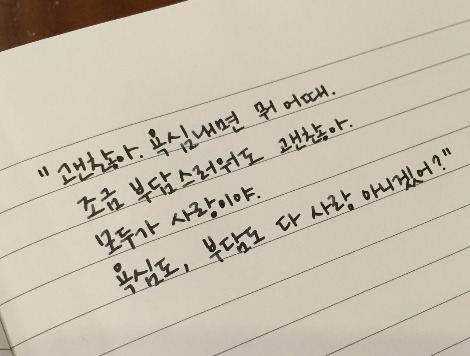 "괜찮아. 욕심내면 뭐 어때.
조금 부담스러워도 괜찮아.
모두가 사랑이야.
욕심도, 부담도 다 사랑 아니겠어?"